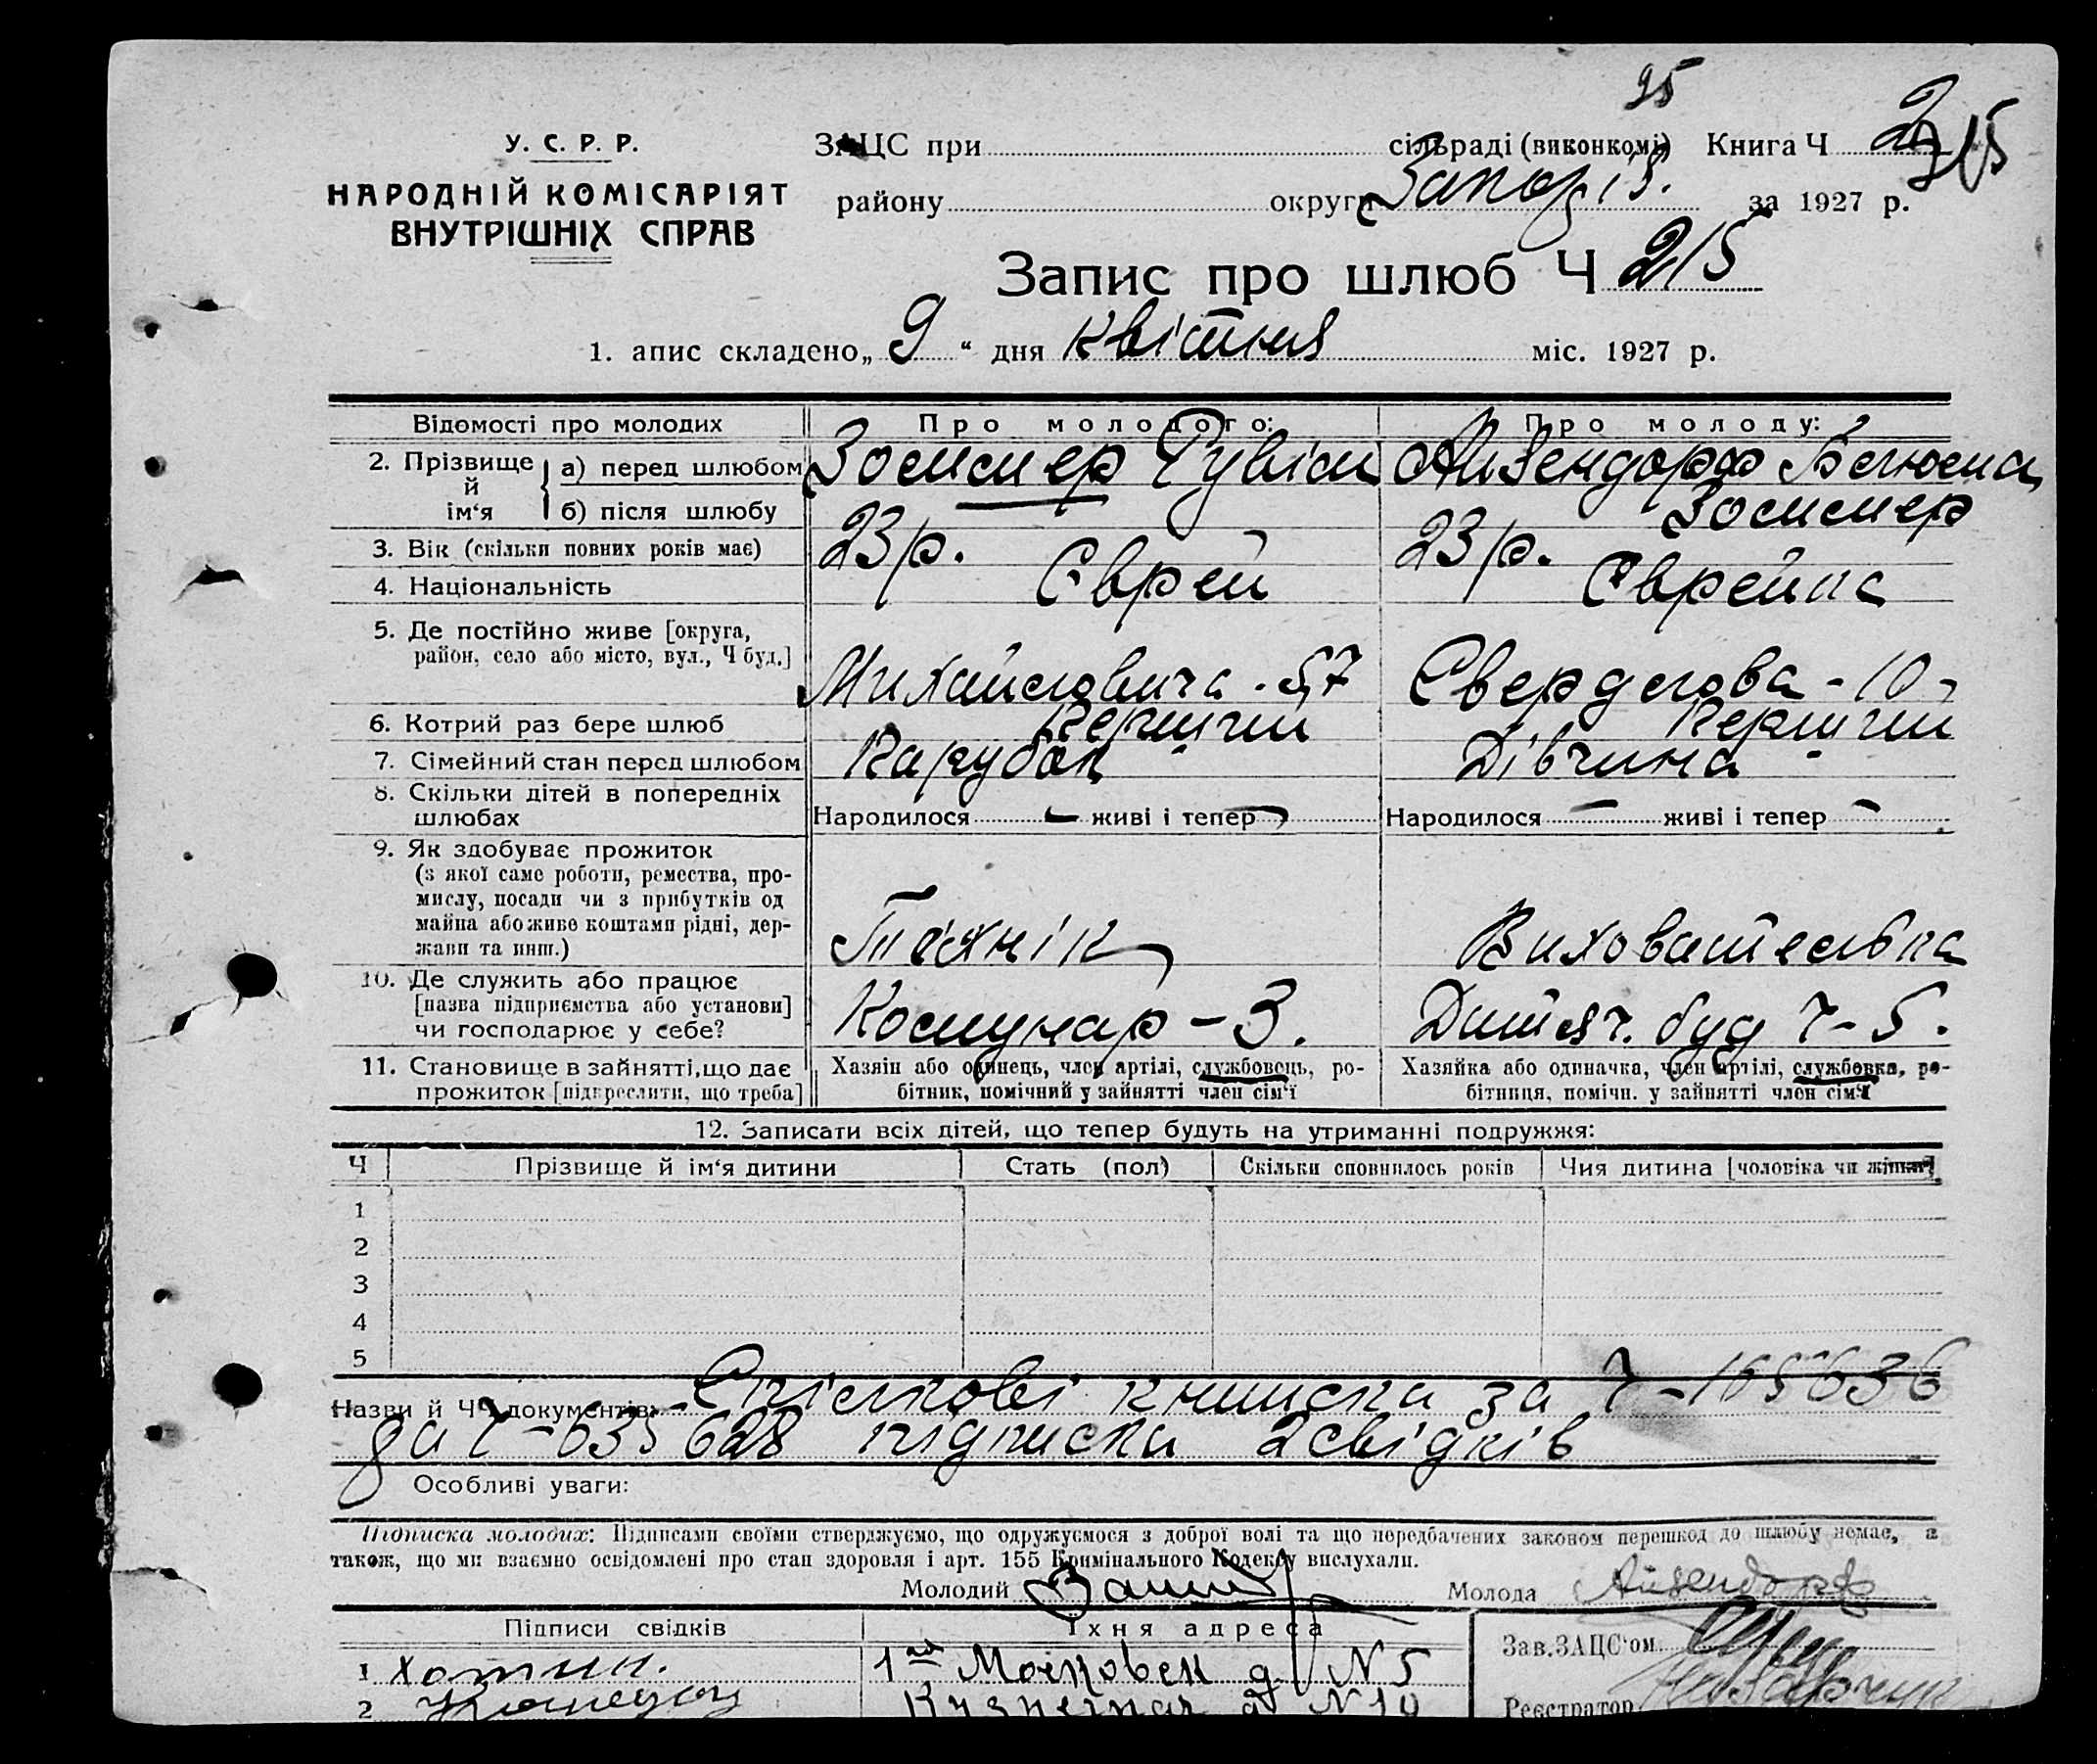 95
У. С. Р. Р.
НАРОДНІЙ КОМІСАРІЯТ
ВНУТРІШНІХ СПРАВ
ЗАЦС при сільраді (виконкомі) Книга Ч 2
215
району округи Запоріз. за 1927 р.
Запис про шлюб Ч 215
1. апис складено „ 9 “ дня квітня міс. 1927 р.
Відомості про молодих Про молодого: Про молоду:
2. Прізвище й ім‘я а) перед шлюбом Рувім Айзендорф
б) після шлюбу
3. Вік (скільки повних років має) 23 р. 23 р.
4. Національність Єврей Єврейка
5. Де постійно живе [округа,
район, село або місто, вул., Ч буд.] Михайловича - 57 Свердлова - 10
6. Котрий раз бере шлюб Перший Перший
7. Сімейний стан перед шлюбом Парубок Дівчина
8. Скільки дітей в попередніх
шлюбах Народилося — живі і тепер — Народилося — живі і тепер —
9. Як здобуває прожиток
(з якої саме роботи, ремества, про-
мислу, посади чи з прибутків од
майна або живе коштами рідні, дер-
жави та инш.) Технік Вихователька
10. Де служить або працює
[назва підприємства або установи]
чи господарює у себе? Комунар - 3. Дитяч. буд Ч - 5.
11. Становище в зайнятті, що дає
прожиток [підкреслити, що треба]
Хазяін або одинець, член артілі, службовець, ро-
бітник, помічний у зайнятті член сім‘ї
Хазяйка або одиначка, член артілі, службовка, ро-
бітниця, помічн. у зайнятті член сім‘ї
12. Записати всіх дітей, що тепер будуть на утриманні подружжя:
Ч Прізвище й ім‘я дитини Стать (пол) Скільки сповнилось років Чия дитина [чоловіка чи жінки]
1
2
3
4
5
Назви й ЧЧ документів: Спілкові книжка за Ч - 165636
да Ч - 635628 підписка 2 свідків
Особливі уваги:
Підписка молодих: Підписами своїми стверджуємо, що одружуємося з доброї волі та що передбачених законом перешкод до шлюбу немає, а
також, що ми взаємно освідомлені про стан здоровля і арт. 155 Кримінального Кодексу вислухали.
Молодий Молода Айзендорф
Підписи свідків Їхня адреса Зав. ЗАЦС‘ом
1 Хотин. 1ая Московск д. N 5
2 д N 10 Реєстратор